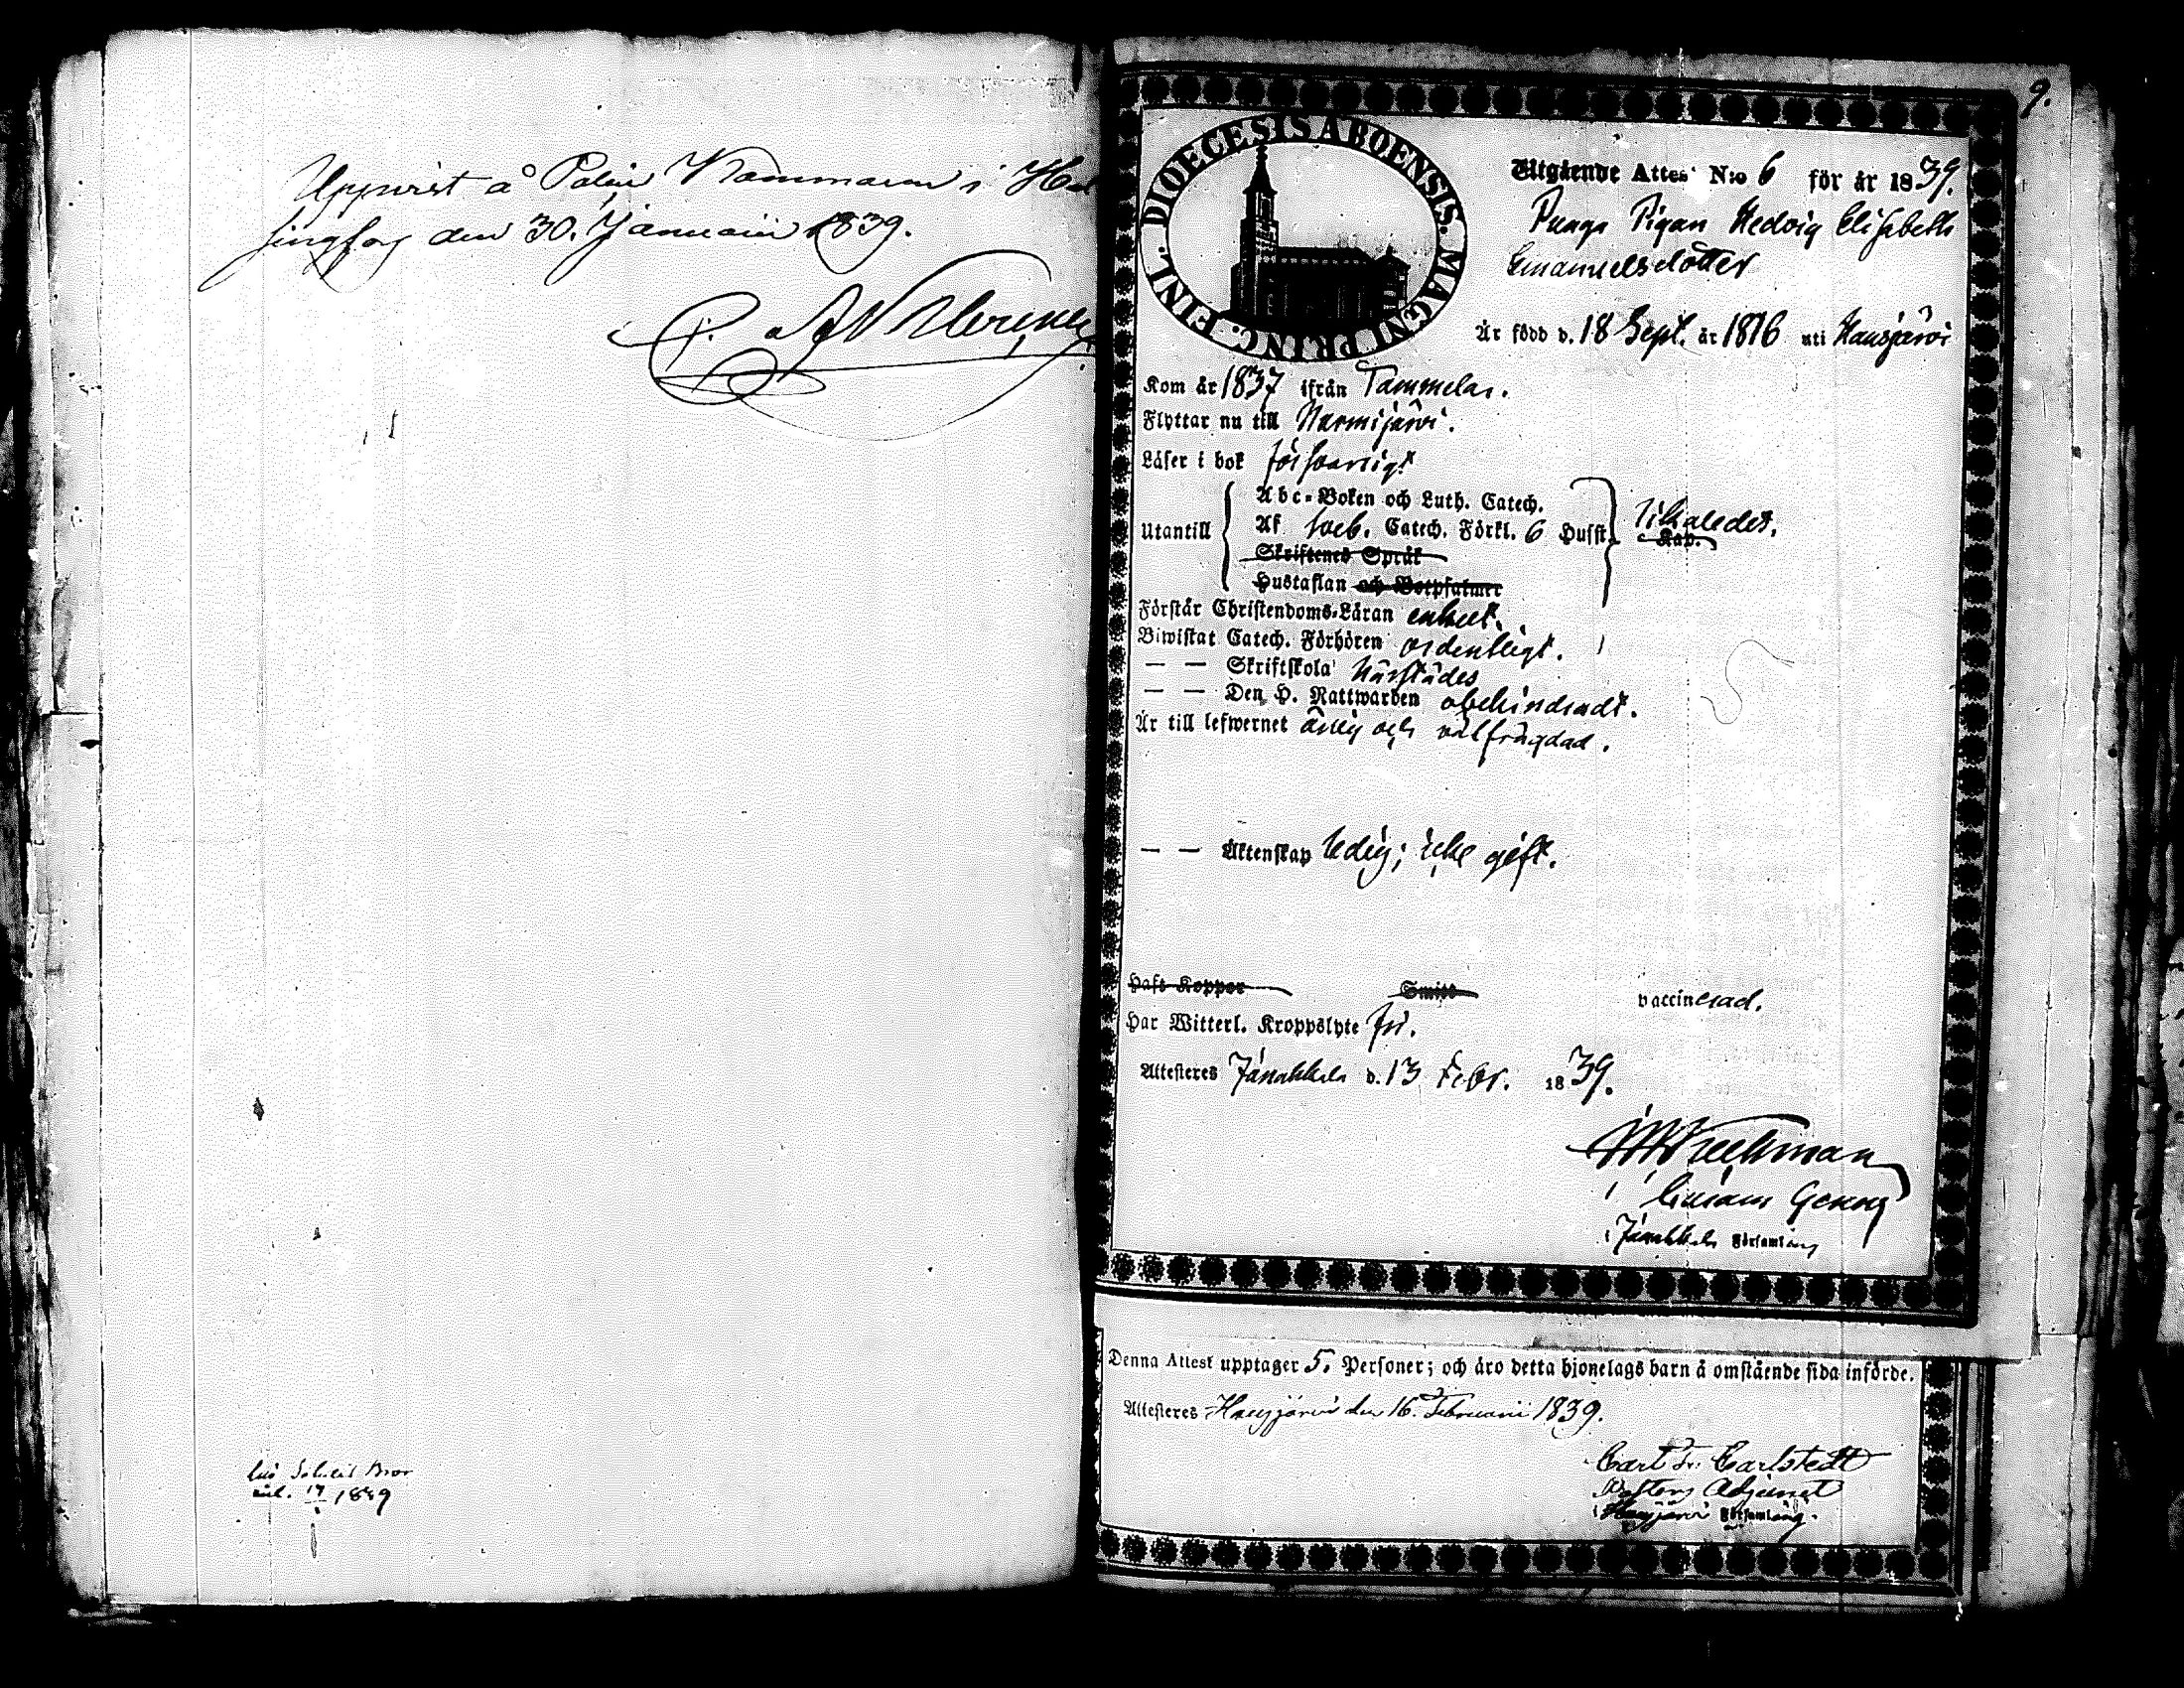 Uppvist å Polis Kammaren i Hel
singfors den 30. Januarii 1839.
1839
9.
DIOECESIS ABOENSIS. MAGNI PRINC. FINL.
Utgående Attest N:o 6 för år 1839.
Pigan Hedvig Elisabeth
Emanuelsdotter
Är född d. 18 Sept. år 1816 uti Hausjärvi
Kom år 1837 ifrån Tammela.
Flyttar nu till Nurmijärvi.
Läser i bok försvarligt
Abc-Boken och Luth. Catech.
Utantill Af Sveb. Catech. Förkl. 6 Hufst. Kap.
Skriftenes Språk
Hustaflan och Botpsalmer
Förstår Christendoms-Läran enkelt.
Biwistat Catech. Förhören ordentligt.
— — Skriftskola härstädes
— — Den H. Nattwarden obehindradt.
Är till lefwernet ärlig och välfrägdad.
— — Äktenskap ledig; icke gift.
Haft Koppor Smitt vaccinerad.
Har Witterl. Kroppslyte fri.
Attesteres Janakkala d. 13 Febr. 1839.
i Janakkala Församling
Denna Attest upptager 5. Personer; och äro detta hjonelags barn å omstående sida införde.
Attesteres Hausjärvi den 16. Februarii 1839.
Carl Fr. Carlstedt
Pastors Adjunct
i Hausjärvi Församling.